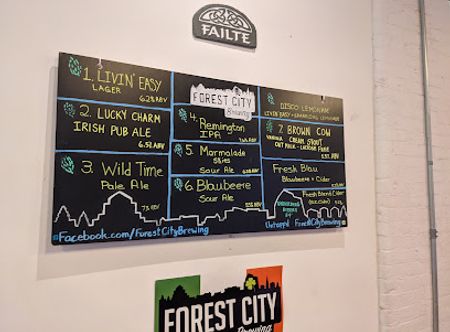 FAILTE
1. LIVIN' EASY
LAGER
2. LUCKY CHARM
IRISH PUB ALE
3. Wild Time
Pale Ale
FOREST CITY
Brewing
4. Remington
IPA
5. Marmalade
Skies
Sour Ale
6. Blaubeere
Sour Ale
DISCO LEMONADE
LIVIN' EASY + SPARKLING LEMONADE
7. BROWN COW
VANILLA CREAM STOUT
OAT MILK - LACTOSE FREE
Fresh Blau
Blaubeere + Cider
Fresh Blend Cider
Facebook.com/ForestCityBrewing
Untappd ForestCityBrewing
FOREST CITY
Brewing